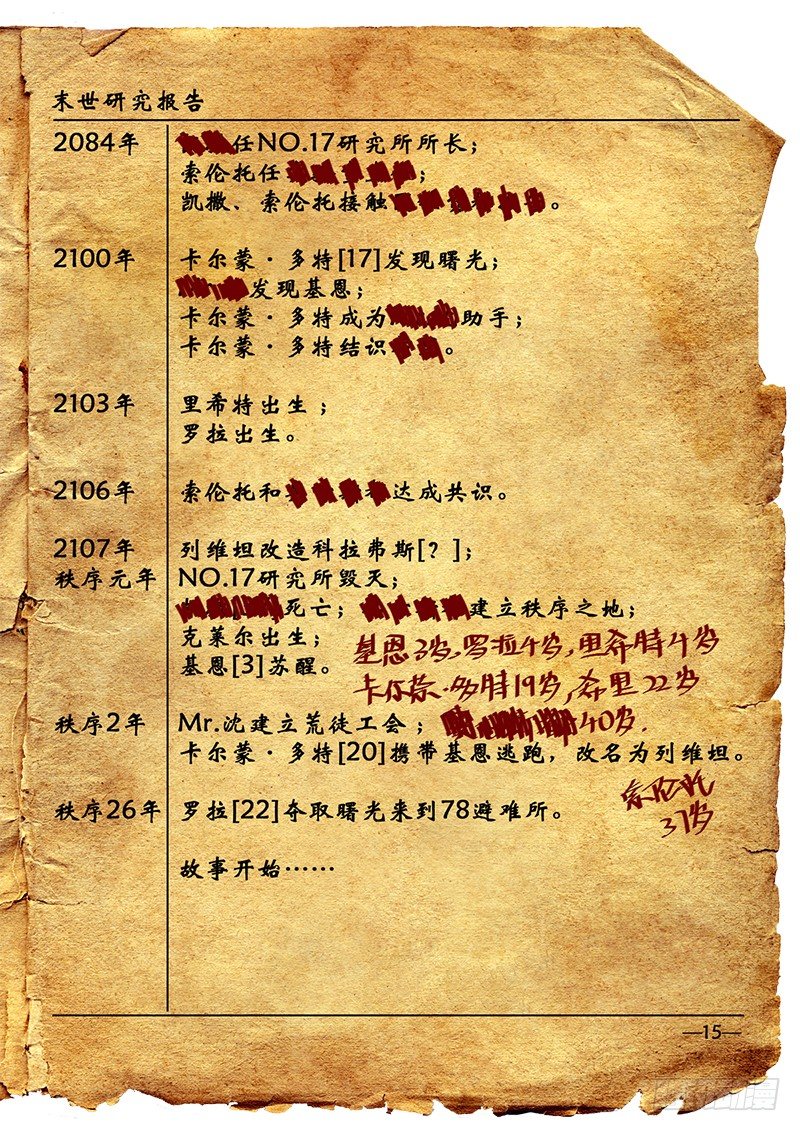 末世研究报告
2084年 任NO.17研究所所长；
索伦托任；
凯撒、索伦托接触。
2100年 卡尔蒙·多特[17]发现曙光；
发现基恩；
卡尔蒙·多特成为助手；
卡尔蒙·多特结识。
2103年 里希特出生；
罗拉出生。
2106年 索伦托和达成共识。
2107年 列维坦改造科拉弗斯[?]；
秩序元年 NO.17研究所毁灭；
死亡；建立秩序之地；
克莱尔出生；
基恩[3]苏醒。
基恩3岁,罗拉4岁,里希特4岁
卡尔蒙·多特19岁,希里22岁
秩序2年 Mr.沈建立荒徒工会；
40岁.
卡尔蒙·多特[20]携带基恩逃跑，改名为列维坦。
秩序26年 罗拉[22]夺取曙光来到78避难所。
索伦托
37岁
故事开始……
—15—